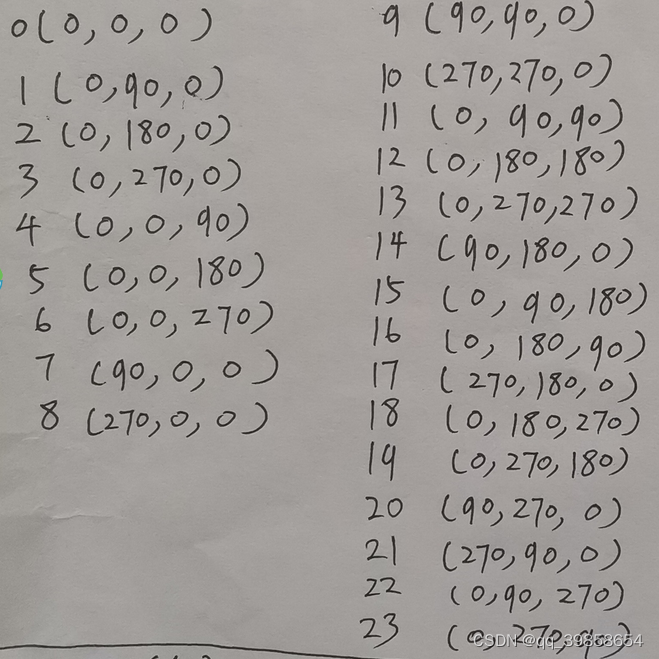 0 (0, 0, 0)
1 (0, 90, 0)
2 (0, 180, 0)
3 (0, 270, 0)
4 (0, 0, 90)
5 (0, 0, 180)
6 (0, 0, 270)
7 (90, 0, 0)
8 (270, 0, 0)
9 (90, 90, 0)
10 (270, 270, 0)
11 (0, 90, 90)
12 (0, 180, 180)
13 (0, 270, 270)
14 (90, 180, 0)
15 (0, 90, 180)
16 (0, 180, 90)
17 (270, 180, 0)
18 (0, 180, 270)
19 (0, 270, 180)
20 (90, 270, 0)
21 (270, 90, 0)
22 (0, 90, 270)
23 (0, 270,
CSDN @qq_39853654